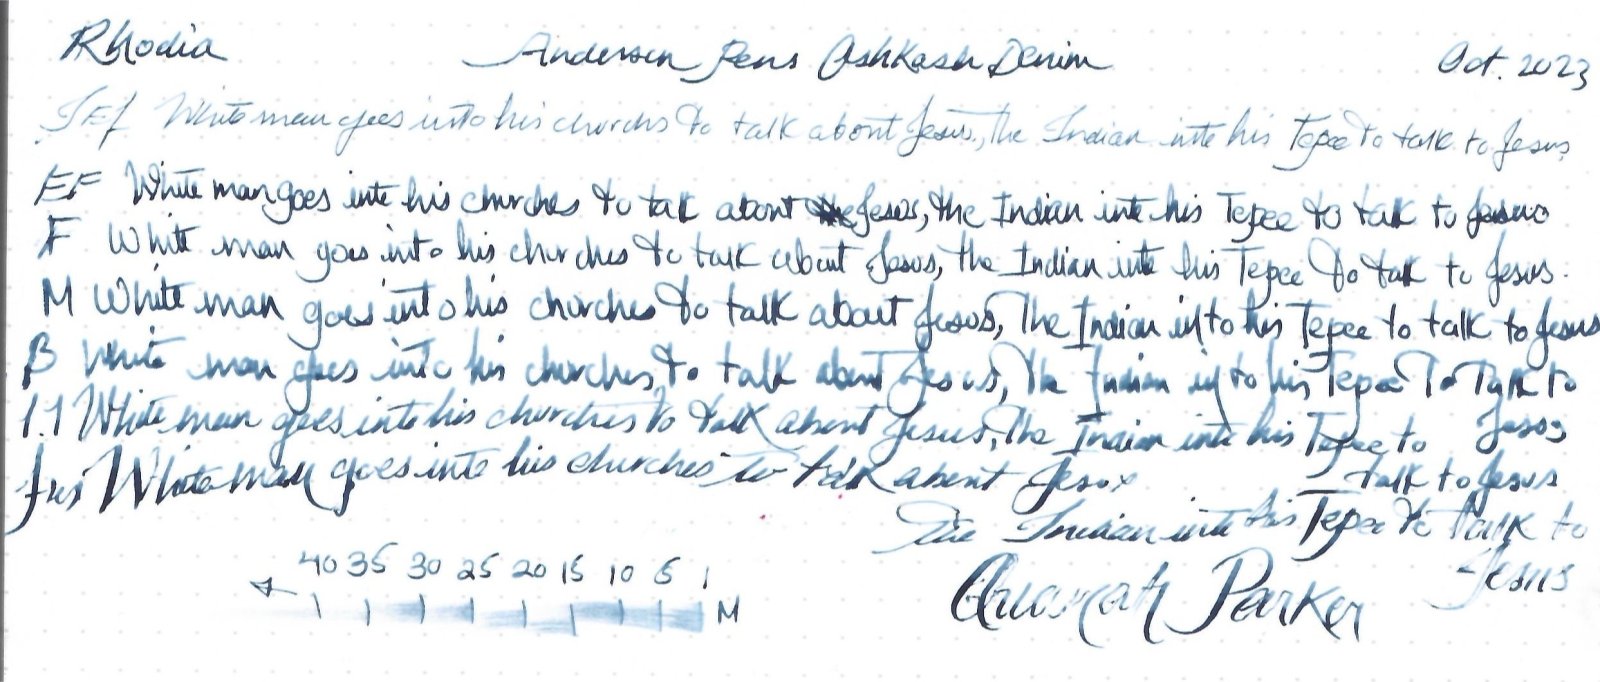 Rhodia Andersen Pens OshKosh Denim Oct. 2023
JEF White man goes into his churchs to talk about Jesus, the Indian into his Tepee to talk to Jesus
EF White man goes into his churches to talk about the Jesus, the Indian into his Tepee to talk to Jesus
F White man goes into his churches to talk about Jesus, the Indian into his Tepee to talk to Jesus.
M White man goes into his churches to talk about Jesus, The Indian into his Tepee to talk to Jesus
B White man goes into his churches, to talk about Jesus, the Indian into his Tepee To Talk to
Jesus
1.1 White man goes into his churches to talk about Jesus, The Indian into his Tepee to
talk to Jesus
Fus White man goes into his churches to talk about Jesus
The Indian into his Tepee to talk to
Jesus
40 35 30 25 20 15 10 5 1
M
Quanah Parker